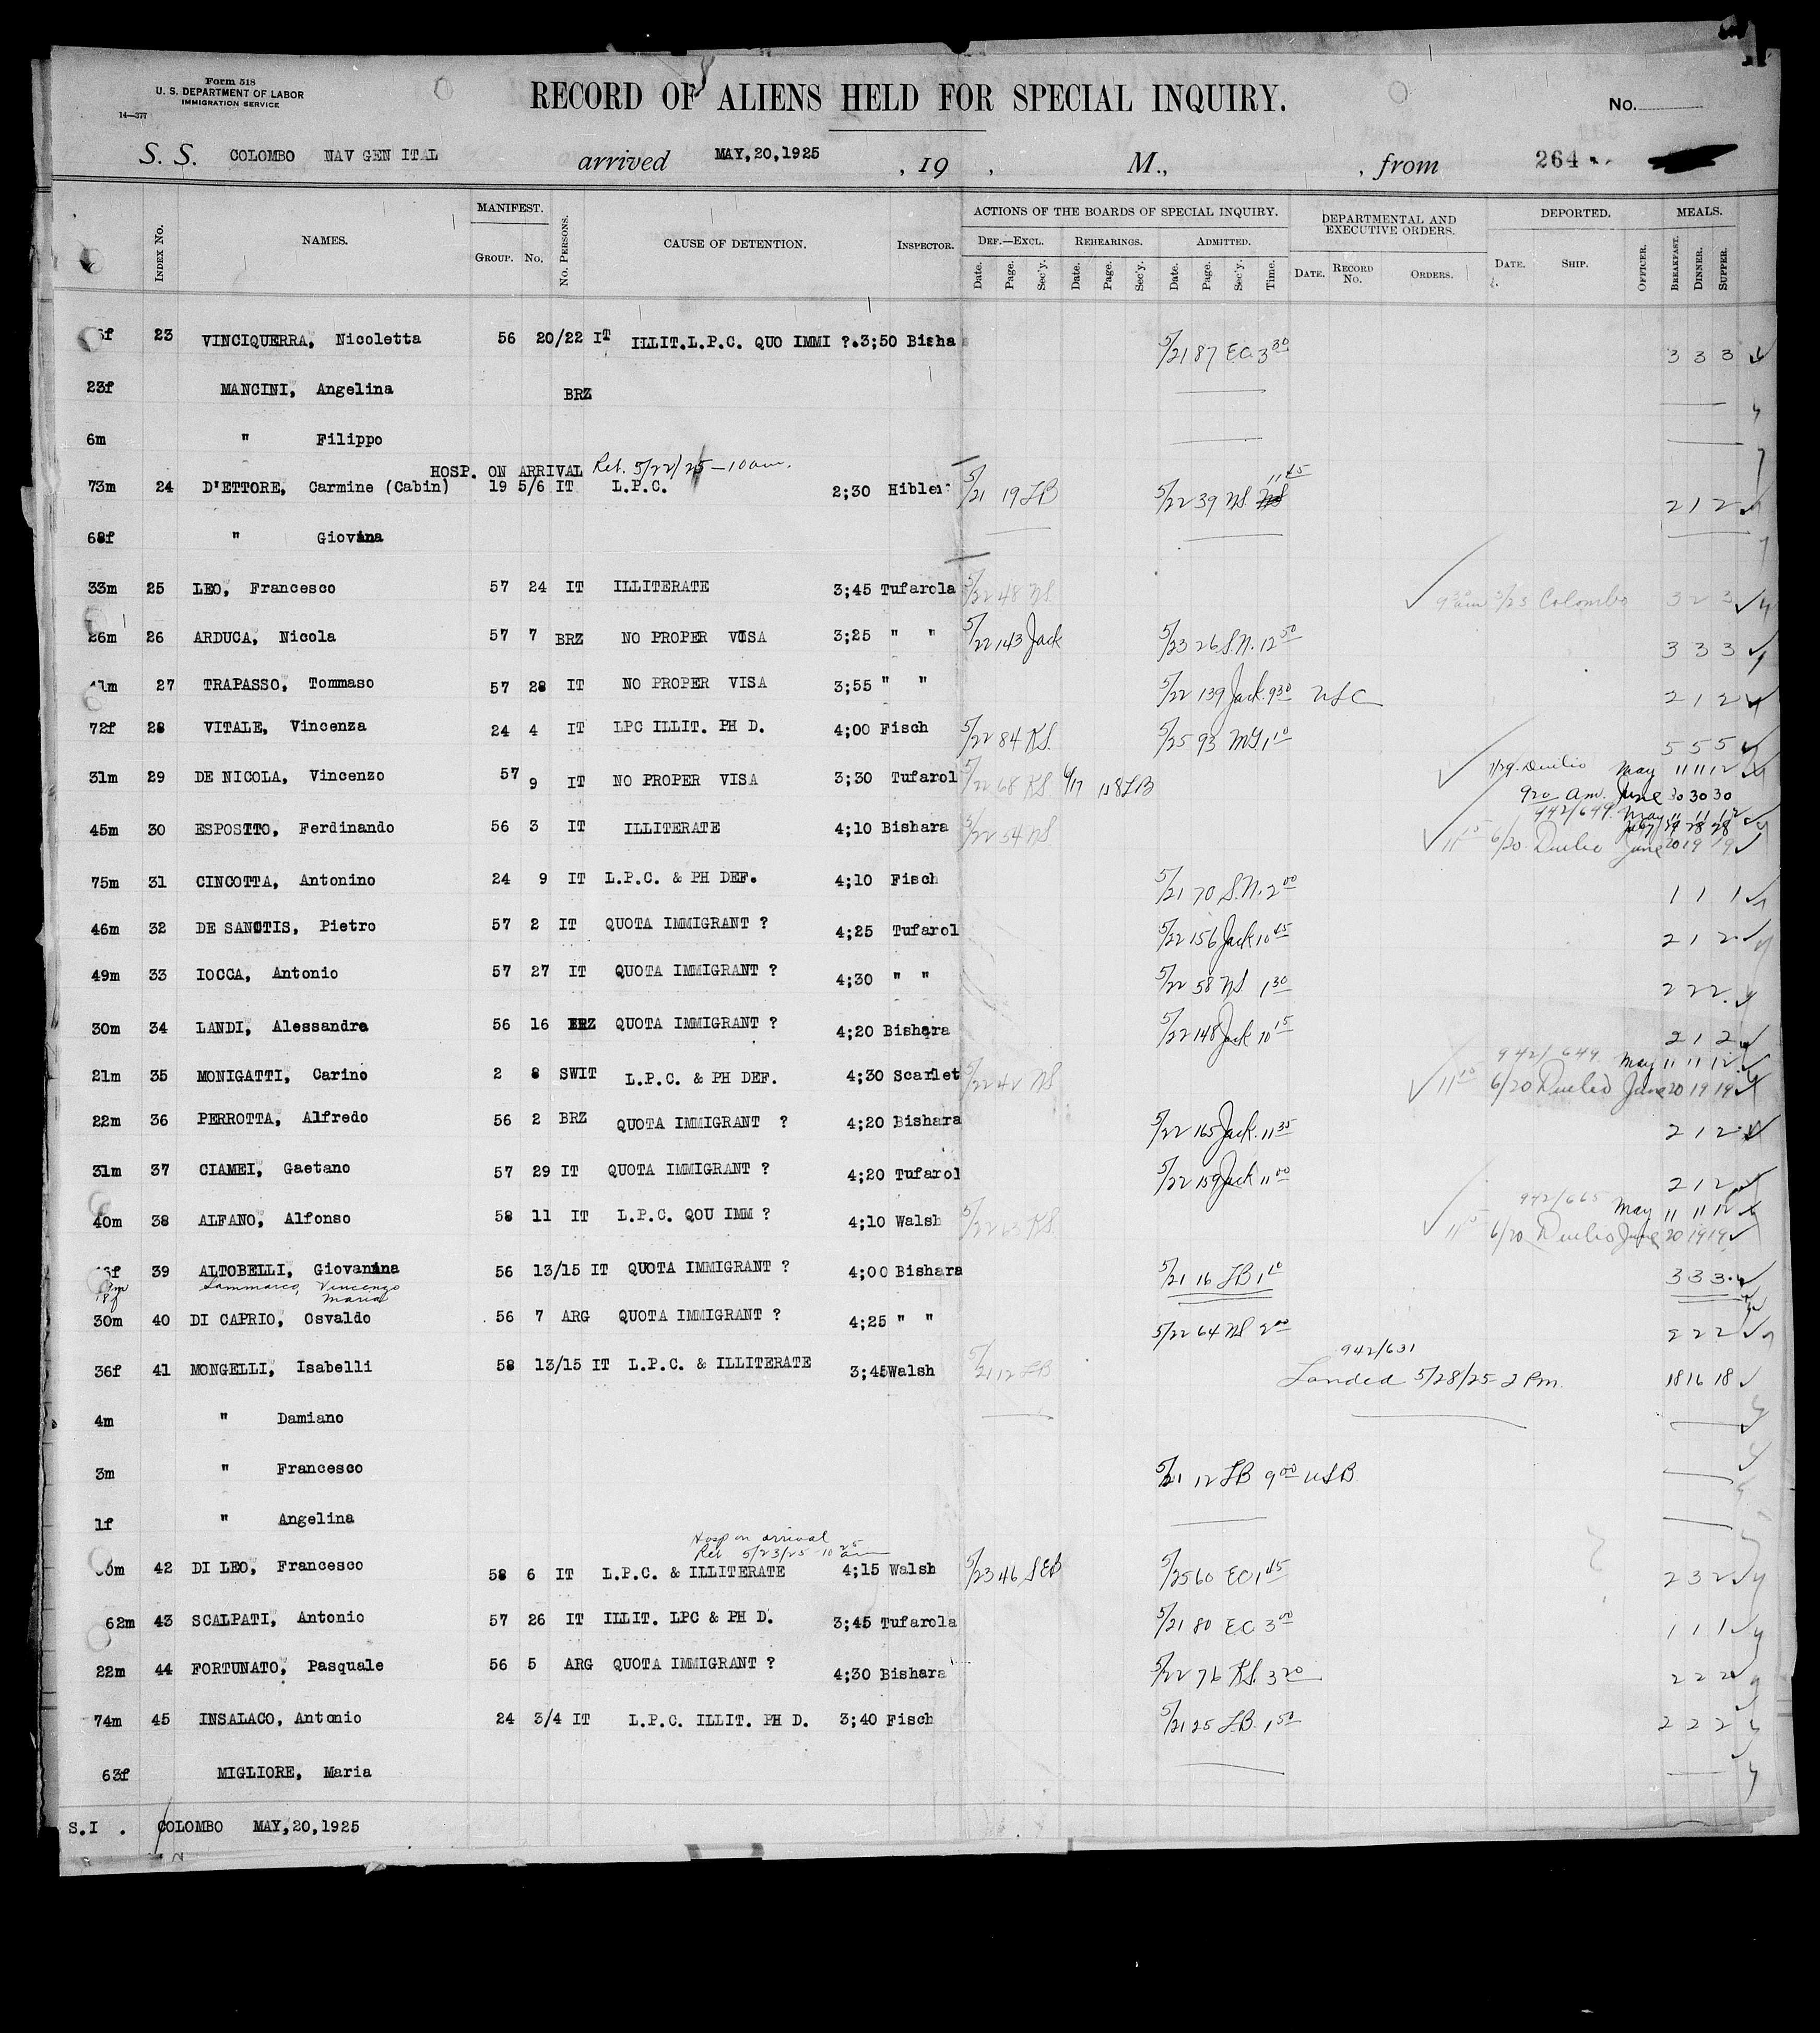 Form 518
U. S. DEPARTMENT OF LABOR
IMMIGRATION SERVICE
14—377
RECORD OF ALIENS HELD FOR SPECIAL INQUIRY.
No.
S. S. COLOMBO NAV GEN ITAL arrived MAY,20,1925 , 19 , M., , from 264
INDEX No. NAMES. MANIFEST. GROUP. No. No. PERSONS. CAUSE OF DETENTION. INSPECTOR. ACTIONS OF THE BOARDS OF SPECIAL INQUIRY. DEF.—EXCL. Date. Page. Sec'y. REHEARINGS. Date. Page. Sec'y. ADMITTED. Date. Page. Sec'y. Time. DEPARTMENTAL AND EXECUTIVE ORDERS. DATE. RECORD No. ORDERS. DEPORTED. DATE. SHIP. OFFICER. MEALS. BREAKFAST. DINNER. SUPPER.
23 VINCIQUERRA, Nicoletta 56 20/22 IT ILLIT.L.P.C. QUO IMMI ?.3;50 Bisha 5/21 87 EC 3 30 3 3 3
23f MANCINI, Angelina BRZ
6m " Filippo
HOSP. ON ARRIVAL Rel. 5/22/25—10am.
73m 24 D'ETTORE, Carmine (Cabin) 19 5/6 IT L.P.C. 2;30 Hibler 5/21 19 LB 5/22 39 NS 11 45 2 1 2
68f " Giovina
33m 25 LEO, Francesco 57 24 IT ILLITERATE 3;45 Tufarola 5/22 48 NS Colombo 3 2 3
26m 26 ARDUCA, Nicola 57 7 BRZ NO PROPER VISA 3;25 " " 5/22 143 Jack 5/23 26 S.N. 12 50 3 3 3
27 TRAPASSO, Tommaso 57 28 IT NO PROPER VISA 3;55 " " 5/22 139 Jack 9 30 USC 2 1 2
72f 28 VITALE, Vincenza 24 4 IT LPC ILLIT. PH D. 4;00 Fisch 5/22 84 KS. 5/25 93 MG 1 10 5 5 5
31m 29 DE NICOLA, Vincenzo 57 9 IT NO PROPER VISA 3;30 Tufarol 5/22 68 KS 6/17 118 LB Duilio May 11 11 12
9 20 am. June 30 30 30
942/649 May 11 11 12
45m 30 ESPOSITO, Ferdinando 56 3 IT ILLITERATE 4;10 Bishara 5/22 54 NS 11 15 6/20 Duilio June 20 19 19
75m 31 CINCOTTA, Antonino 24 9 IT L.P.C. & PH DEF. 4;10 Fisch 5/21 70 S.N. 2 00 1 1 1
46m 32 DE SANCTIS, Pietro 57 2 IT QUOTA IMMIGRANT ? 4;25 Tufarol 5/22 156 Jack 10 45 2 1 2
49m 33 IOCCA, Antonio 57 27 IT QUOTA IMMIGRANT ? 4;30 " " 5/22 58 NS 1 30 2 2 2
30m 34 LANDI, Alessandra 56 16 BRZ QUOTA IMMIGRANT ? 4;20 Bishara 5/22 148 Jack 10 15 2 1 2
942/649 May 11 11 12
21m 35 MONIGATTI, Carino 2 8 SWIT L.P.C. & PH DEF. 4;30 Scarlet 5/22 42 NS 11 15 6/20 Duilio June 20 19 19
22m 36 PERROTTA, Alfredo 56 2 BRZ QUOTA IMMIGRANT ? 4;20 Bishara 5/22 165 Jack. 11 35 2 1 2
31m 37 CIAMEI, Gaetano 57 29 IT QUOTA IMMIGRANT ? 4;20 Tufarol 5/22 159 Jack 11 00 2 1 2
942/665 May 11 11 12
40m 38 ALFANO, Alfonso 58 11 IT L.P.C. QOU IMM ? 4;10 Walsh 5/22 63 KS. 11 15 6/20 Duilio June 20 19 19
39 ALTOBELLI, Giovannina 56 13/15 IT QUOTA IMMIGRANT ? 4;00 Bishara 5/21 16 LB 1 10 3 3 3
18f Sammarco, Vincenzo
Maria
30m 40 DI CAPRIO, Osvaldo 56 7 ARG QUOTA IMMIGRANT ? 4;25 " " 5/22 64 NS 2 00 2 2 2
942/631
36f 41 MONGELLI, Isabelli 58 13/15 IT L.P.C. & ILLITERATE 3;45 Walsh 5/21 12 LB Landed 5/28/25 2 Pm. 18 16 18
4m " Damiano
3m " Francesco 5/21 12 LB 9 00 USB
1f " Angelina
Hosp on arrival
Rel 5/23/25—10 25 am
42 DI LEO, Francesco 58 6 IT L.P.C. & ILLITERATE 4;15 Walsh 5/23 46 SEB 5/25 60 EC 1 45 2 3 2
62m 43 SCALPATI, Antonio 57 26 IT ILLIT. LPC & PH D. 3;45 Tufarola 5/21 80 EC 3 00 1 1 1
22m 44 FORTUNATO, Pasquale 56 5 ARG QUOTA IMMIGRANT ? 4;30 Bishara 5/22 76 KS. 3 20 2 2 2
74m 45 INSALACO, Antonio 24 3/4 IT L.P.C. ILLIT. PH D. 3;40 Fisch 5/21 25 LB. 1 50 2 2 2
63f MIGLIORE, Maria
S.I . COLOMBO MAY,20,1925